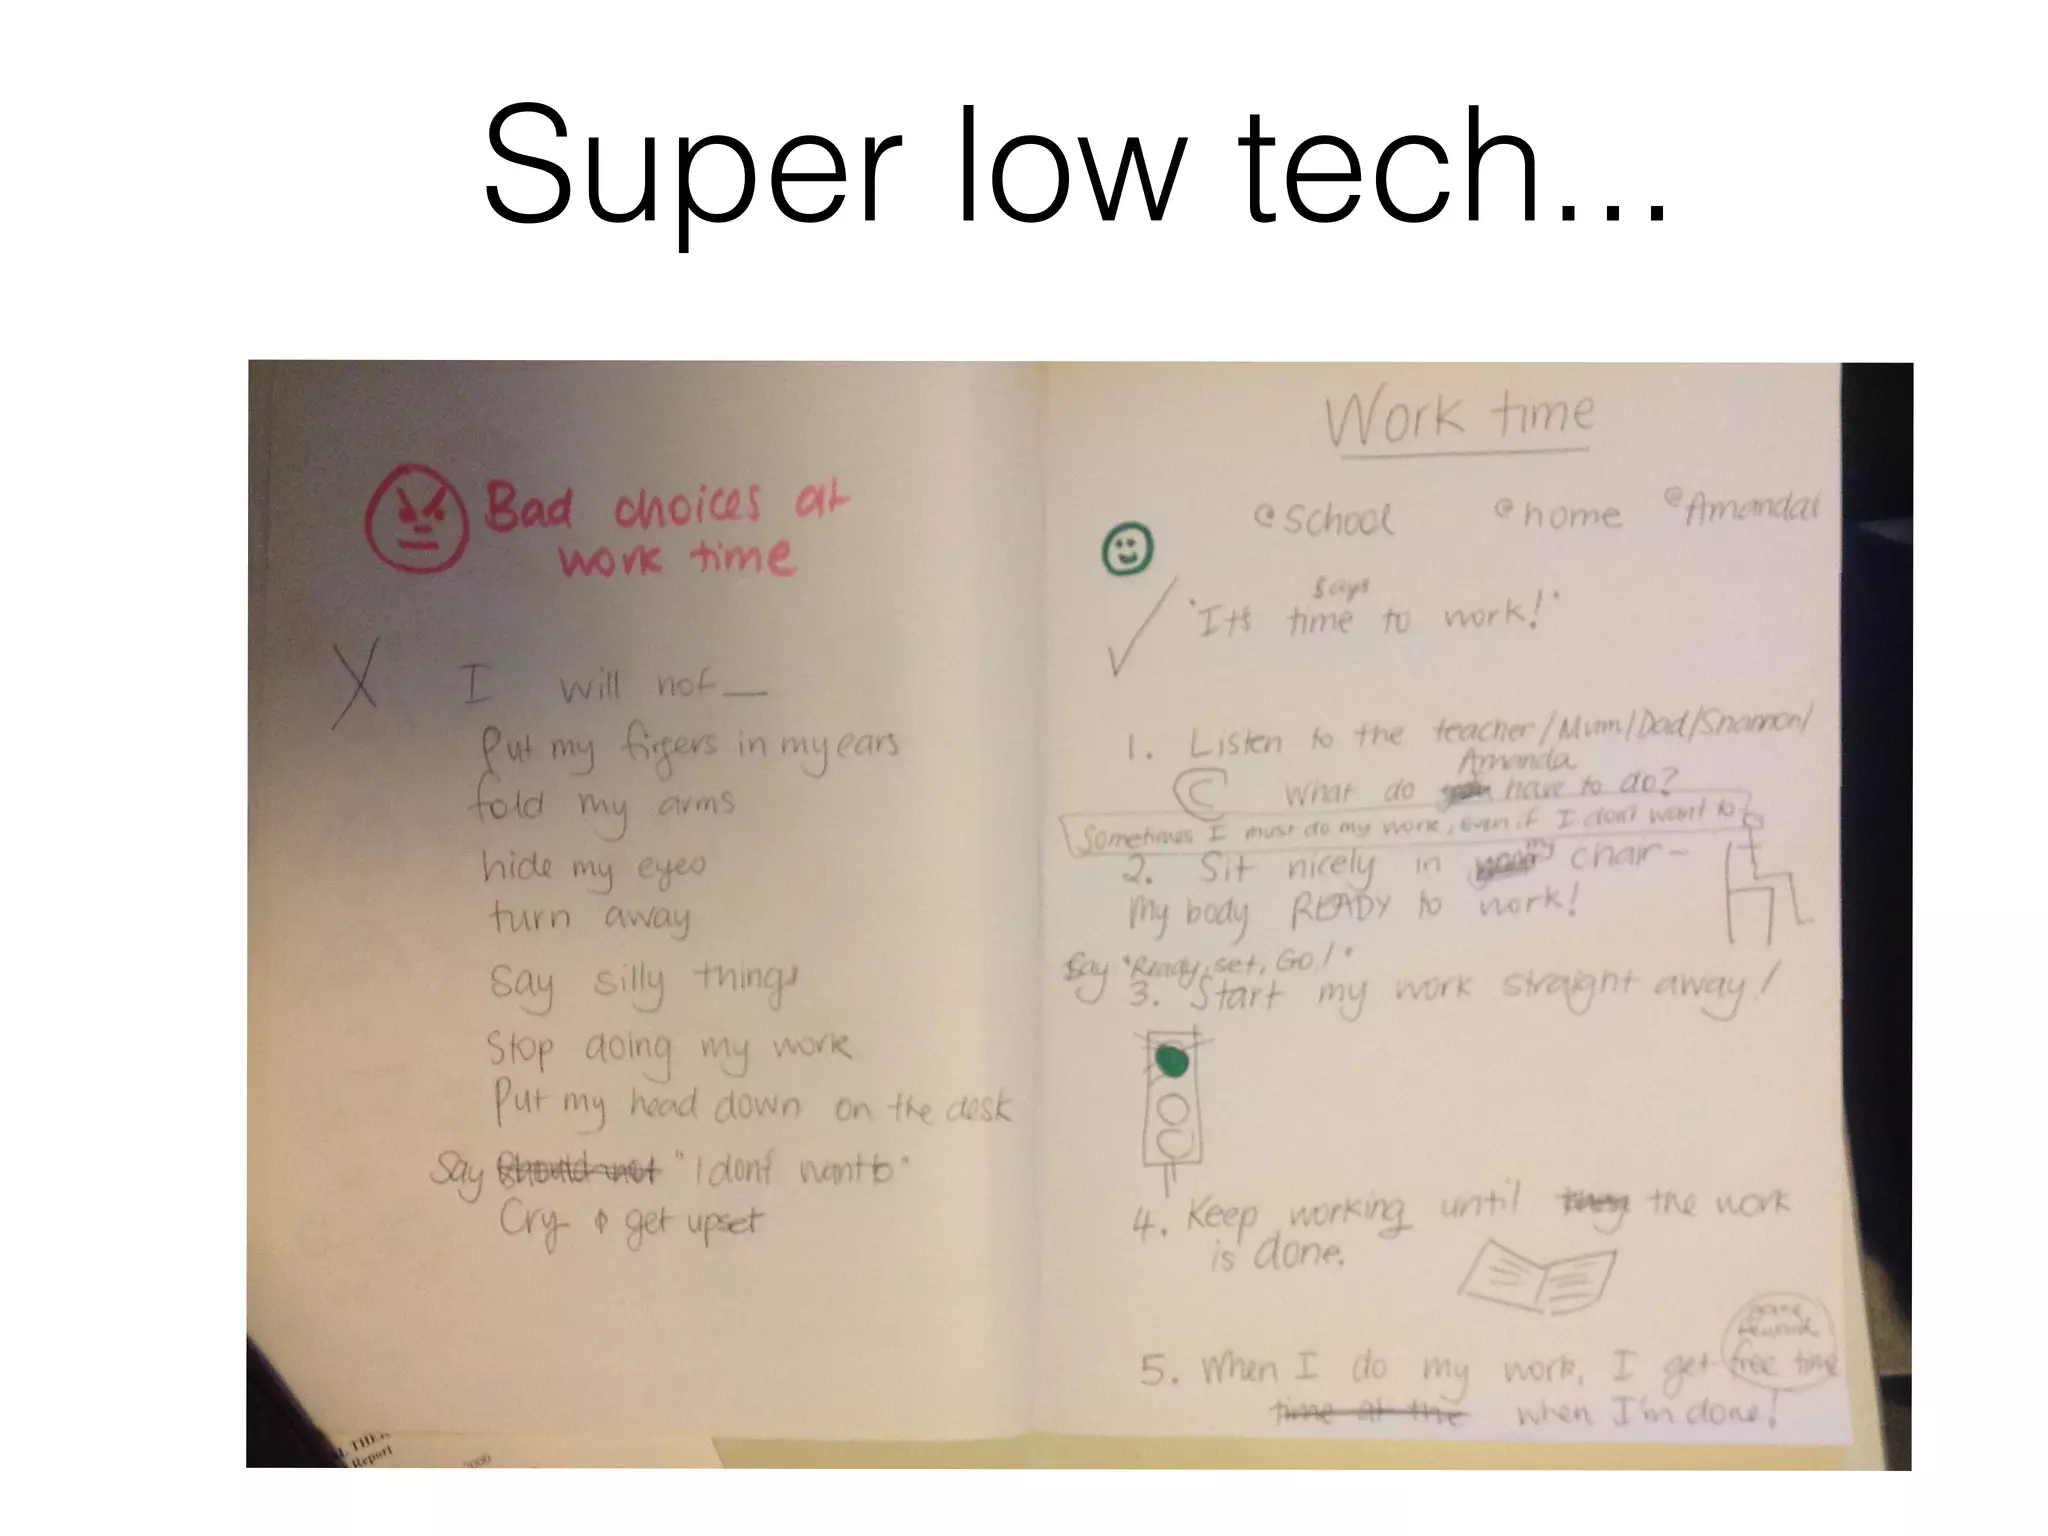 Super low tech...
Bad choices at
work time
X I will not —
Put my fingers in my ears
fold my arms
hide my eyes
turn away
say silly things
Stop doing my work
Put my head down on the desk
Say should not "I dont want to"
Cry & get upset
Work time
@ School @ home @ Amandas
says
"It's time to work!"
1. Listen to the teacher/Mum/Dad/Shannon/
Amanda
What do have to do?
Sometimes I must do my work, even if I don't want to
2. Sit nicely in my chair -
My body READY to work!
Say "Ready, set, Go!"
3. Start my work straight away!
4. Keep working until they the work
is done.
game
reward
5. When I do my work, I get free time
time at the when I'm done!
Report
2000